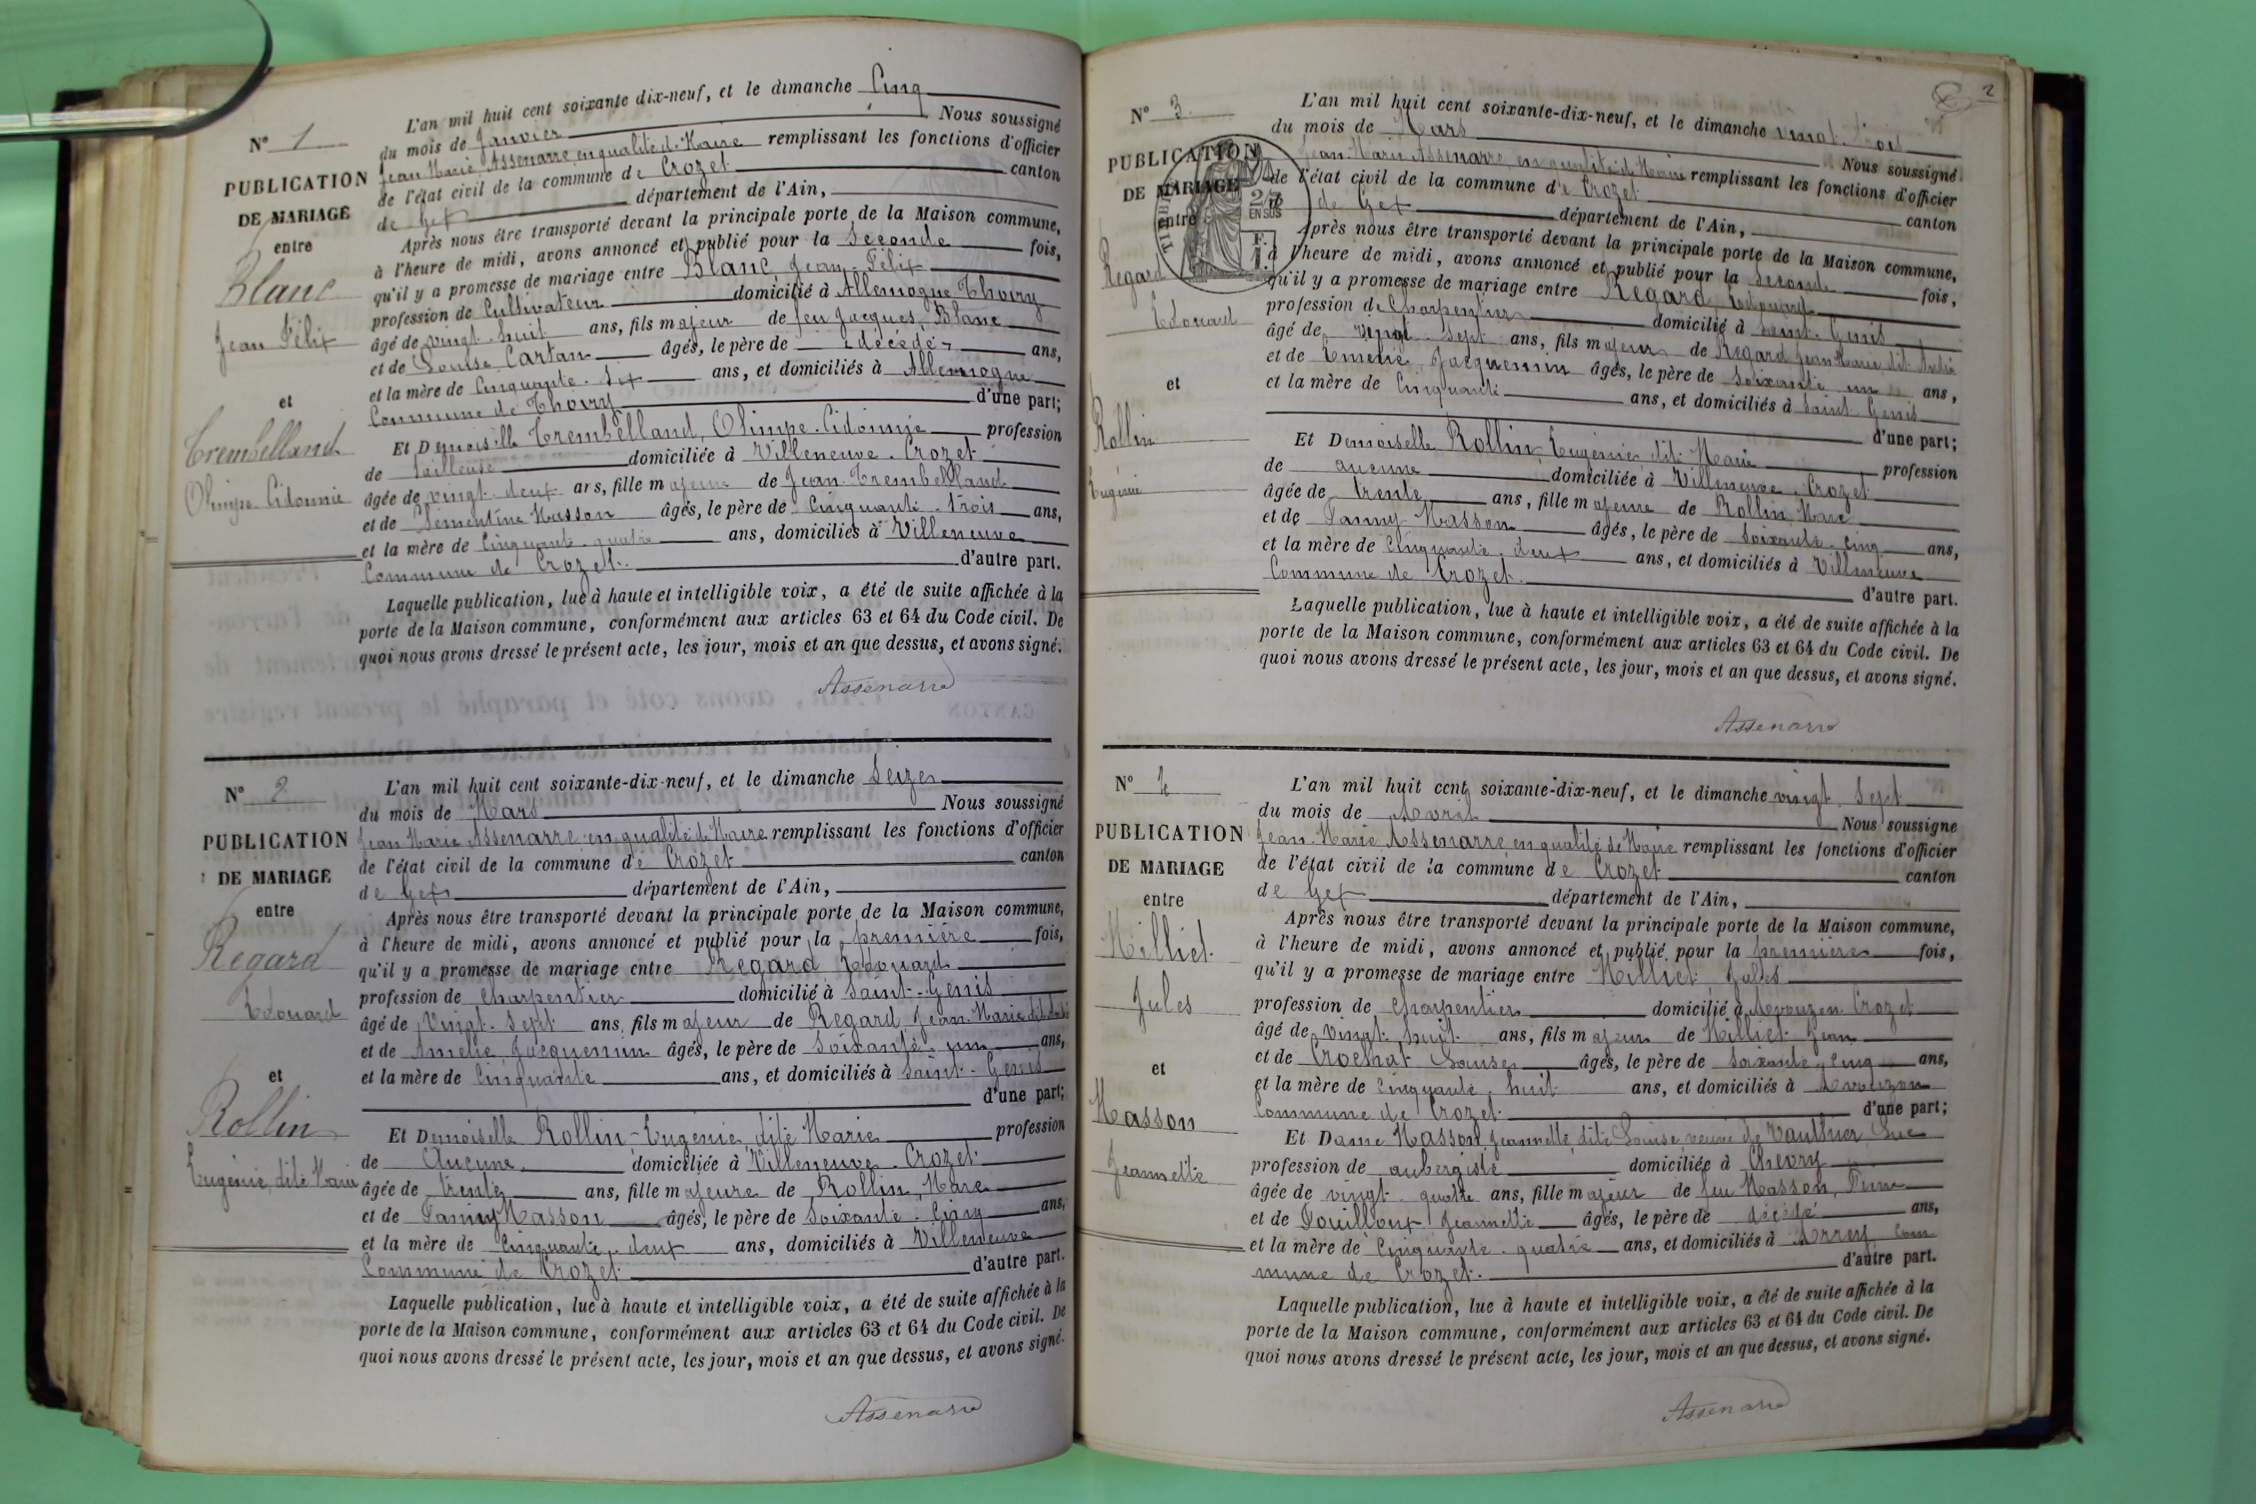 N° 1
PUBLICATION
DE MARIAGE
entre
Blanc
Jean Félix
et
Trembelland
Olimpe Cidonnie
L'an mil huit cent soixante dix-neuf, et le dimanche Cinq
du mois de Janvier Nous soussigné
Jean Marie Assenarre en qualité de Maire remplissant les fonctions d'officier
de l'état civil de la commune de Crozet canton
de Gex département de l'Ain,
Après nous être transporté devant la principale porte de la Maison commune,
à l'heure de midi, avons annoncé et publié pour la Seconde fois,
qu'il y a promesse de mariage entre Blanc Jean Félix
profession de Cultivateur domicilié à Allemogne Thoiry
âgé de vingt huit ans, fils majeur de feu Jacques Blanc
et de Louise Cartan âgés, le père de décédé ans,
et la mère de Cinquante Six ans, et domiciliés à Allemogne
Commune de Thoiry d'une part;
Et Demoiselle Trembelland, Olimpe Cidonnie profession
de tailleuse domiciliée à Villeneuve Crozet
âgée de vingt deux ans, fille majeure de Jean Trembelland
et de Clémentine Masson âgés, le père de Cinquante trois ans,
et la mère de Cinquante quatre ans, domiciliés à Villeneuve
Commune de Crozet. d'autre part.
Laquelle publication, lue à haute et intelligible voix, a été de suite affichée à la
porte de la Maison commune, conformément aux articles 63 et 64 du Code civil. De
quoi nous avons dressé le présent acte, les jour, mois et an que dessus, et avons signé.
Assenarre
N° 2
PUBLICATION
DE MARIAGE
entre
Regard
Edouard
et
Rollin
Eugénie dite Marie
L'an mil huit cent soixante-dix-neuf, et le dimanche Seize
du mois de Mars Nous soussigné
Jean Marie Assenarre en qualité de Maire remplissant les fonctions d'officier
de l'état civil de la commune de Crozet canton
de Gex département de l'Ain,
Après nous être transporté devant la principale porte de la Maison commune,
à l'heure de midi, avons annoncé et publié pour la première fois,
qu'il y a promesse de mariage entre Regard Edouard
profession de Charpentier domicilié à Saint-Genis
âgé de Vingt Sept ans, fils majeur de Regard Jean Marie dit
et de Amélie Jacquemin âgés, le père de Soixante un ans,
et la mère de Cinquante ans, et domiciliés à Saint-Genis
d'une part;
Et Demoiselle Rollin-Eugénie dite Marie profession
de Aucune domiciliée à Villeneuve Crozet
âgée de trente ans, fille majeure de Rollin, Marc
et de Fanny Masson âgés, le père de Soixante Cinq ans,
et la mère de Cinquante deux ans, domiciliés à Villeneuve
Commune de Crozet d'autre part.
Laquelle publication, lue à haute et intelligible voix, a été de suite affichée à la
porte de la Maison commune, conformément aux articles 63 et 64 du Code civil. De
quoi nous avons dressé le présent acte, les jour, mois et an que dessus, et avons signé.
Assenarre
2
N° 3
PUBLICATION
DE MARIAGE
entre
Regard
Edouard
et
Rollin
Eugénie
EN SUS
L'an mil huit cent soixante-dix-neuf, et le dimanche vingt trois
du mois de Mars Nous soussigné
Jean Marie Assenarre en qualité de Maire remplissant les fonctions d'officier
de l'état civil de la commune de Crozet canton
de Gex département de l'Ain,
Après nous être transporté devant la principale porte de la Maison commune,
à l'heure de midi, avons annoncé et publié pour la Seconde fois,
qu'il y a promesse de mariage entre Regard Edouard
profession de Charpentier domicilié à Saint-Genis
âgé de vingt Sept ans, fils majeur de Regard Jean Marie dit
et de Emelie Jacquemin âgés, le père de Soixante un ans,
et la mère de Cinquante ans, et domiciliés à Saint Genis
d'une part;
Et Demoiselle Rollin Eugénie dite Marie profession
de aucune domiciliée à Villeneuve Crozet
âgée de trente ans, fille majeure de Rollin Marc
et de Fanny Masson âgés, le père de Soixante cinq ans,
et la mère de Cinquante deux ans, et domiciliés à Villeneuve
Commune de Crozet. d'autre part.
Laquelle publication, lue à haute et intelligible voix, a été de suite affichée à la
porte de la Maison commune, conformément aux articles 63 et 64 du Code civil. De
quoi nous avons dressé le présent acte, les jour, mois et an que dessus, et avons signé.
Assenarre
N° 4
PUBLICATION
DE MARIAGE
entre
Milliet
Jules
et
Masson
Jeannette
L'an mil huit cent soixante-dix-neuf, et le dimanche vingt Sept
du mois de Avril Nous soussigné
Jean Marie Assenarre en qualité de Maire remplissant les fonctions d'officier
de l'état civil de la commune de Crozet canton
de Gex département de l'Ain,
Après nous être transporté devant la principale porte de la Maison commune,
à l'heure de midi, avons annoncé et publié pour la première fois,
qu'il y a promesse de mariage entre Milliet Jules
profession de Charpentier domicilié à Avouzon Crozet
âgé de vingt huit ans, fils majeur de Milliet Jean
et de Crochat Louise âgés, le père de Soixante cinq ans,
et la mère de Cinquante huit ans, et domiciliés à Avouzon
Commune de Crozet d'une part;
Et Dame Masson Jeannette dite Louise veuve de Vauthier Luc
profession de aubergiste domiciliée à Chevry
âgée de vingt quatre ans, fille majeur de feu Masson, Pierre
et de Pouilloux Jeannette âgés, le père de décédé ans,
et la mère de Cinquante quatre ans, et domiciliés à com
mune de Crozet. d'autre part.
Laquelle publication, lue à haute et intelligible voix, a été de suite affichée à la
porte de la Maison commune, conformément aux articles 63 et 64 du Code civil. De
quoi nous avons dressé le présent acte, les jour, mois et an que dessus, et avons signé.
Assenarre